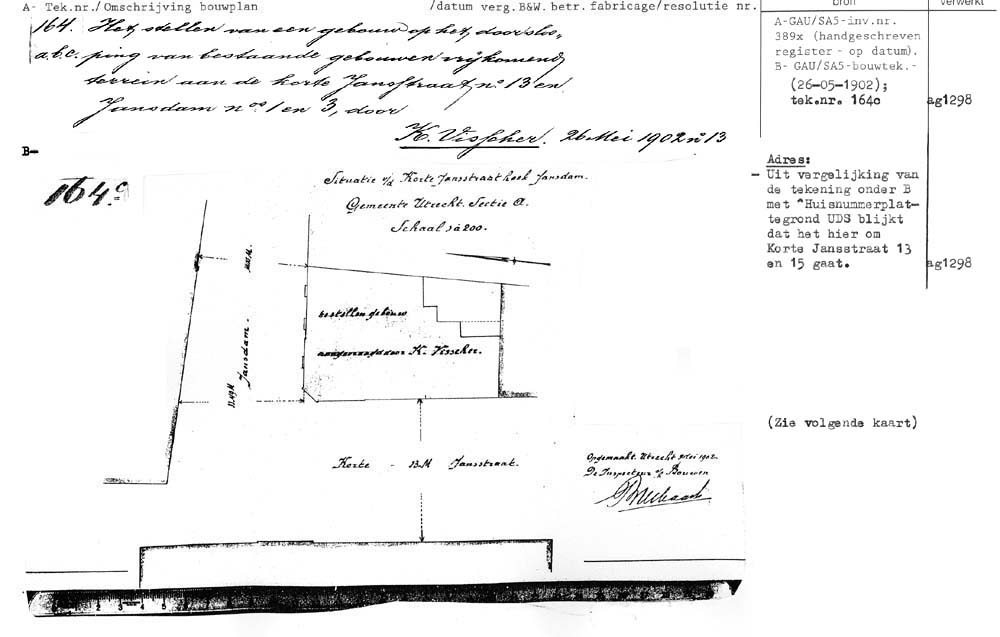 A- Tek.nr./Omschrijving bouwplan /datum verg.B&W. betr. fabricage/resolutie nr.
bron
verwerkt
164. Het stellen van een gebouw op het, door sloo,
a.b.c. ping van bestaande gebouwen vrijkomend
terrein aan de korte Jansstraat no. 13 en
Jansdam nos 1 en 3, door
K. Visscher. 26 Mei 1902 no 13
A-GAU/SA5-inv.nr.
389x (handgeschreven
register - op datum).
B- GAU/SA5-bouwtek.-
(26-05-1902);
tek.nr. 164c
ag1298
B-
164.c
Situatie v/d Korte Jansstraat hoek Jansdam.
Gemeente Utrecht. Sectie A.
Schaal 1 à 200.
Adres:
- Uit vergelijking van
de tekening onder B
met "Huisnummerplat-
tegrond UDS blijkt
dat het hier om
Korte Jansstraat 13
en 15 gaat.
ag1298
Jansdam.
te stellen gebouw
aangevraagd door K. Visscher.
Korte - 13.M Jansstraat.
(Zie volgende kaart)
Opgemaakt. Utrecht Mei 1902.
De Inspecteur v/d Bouwen